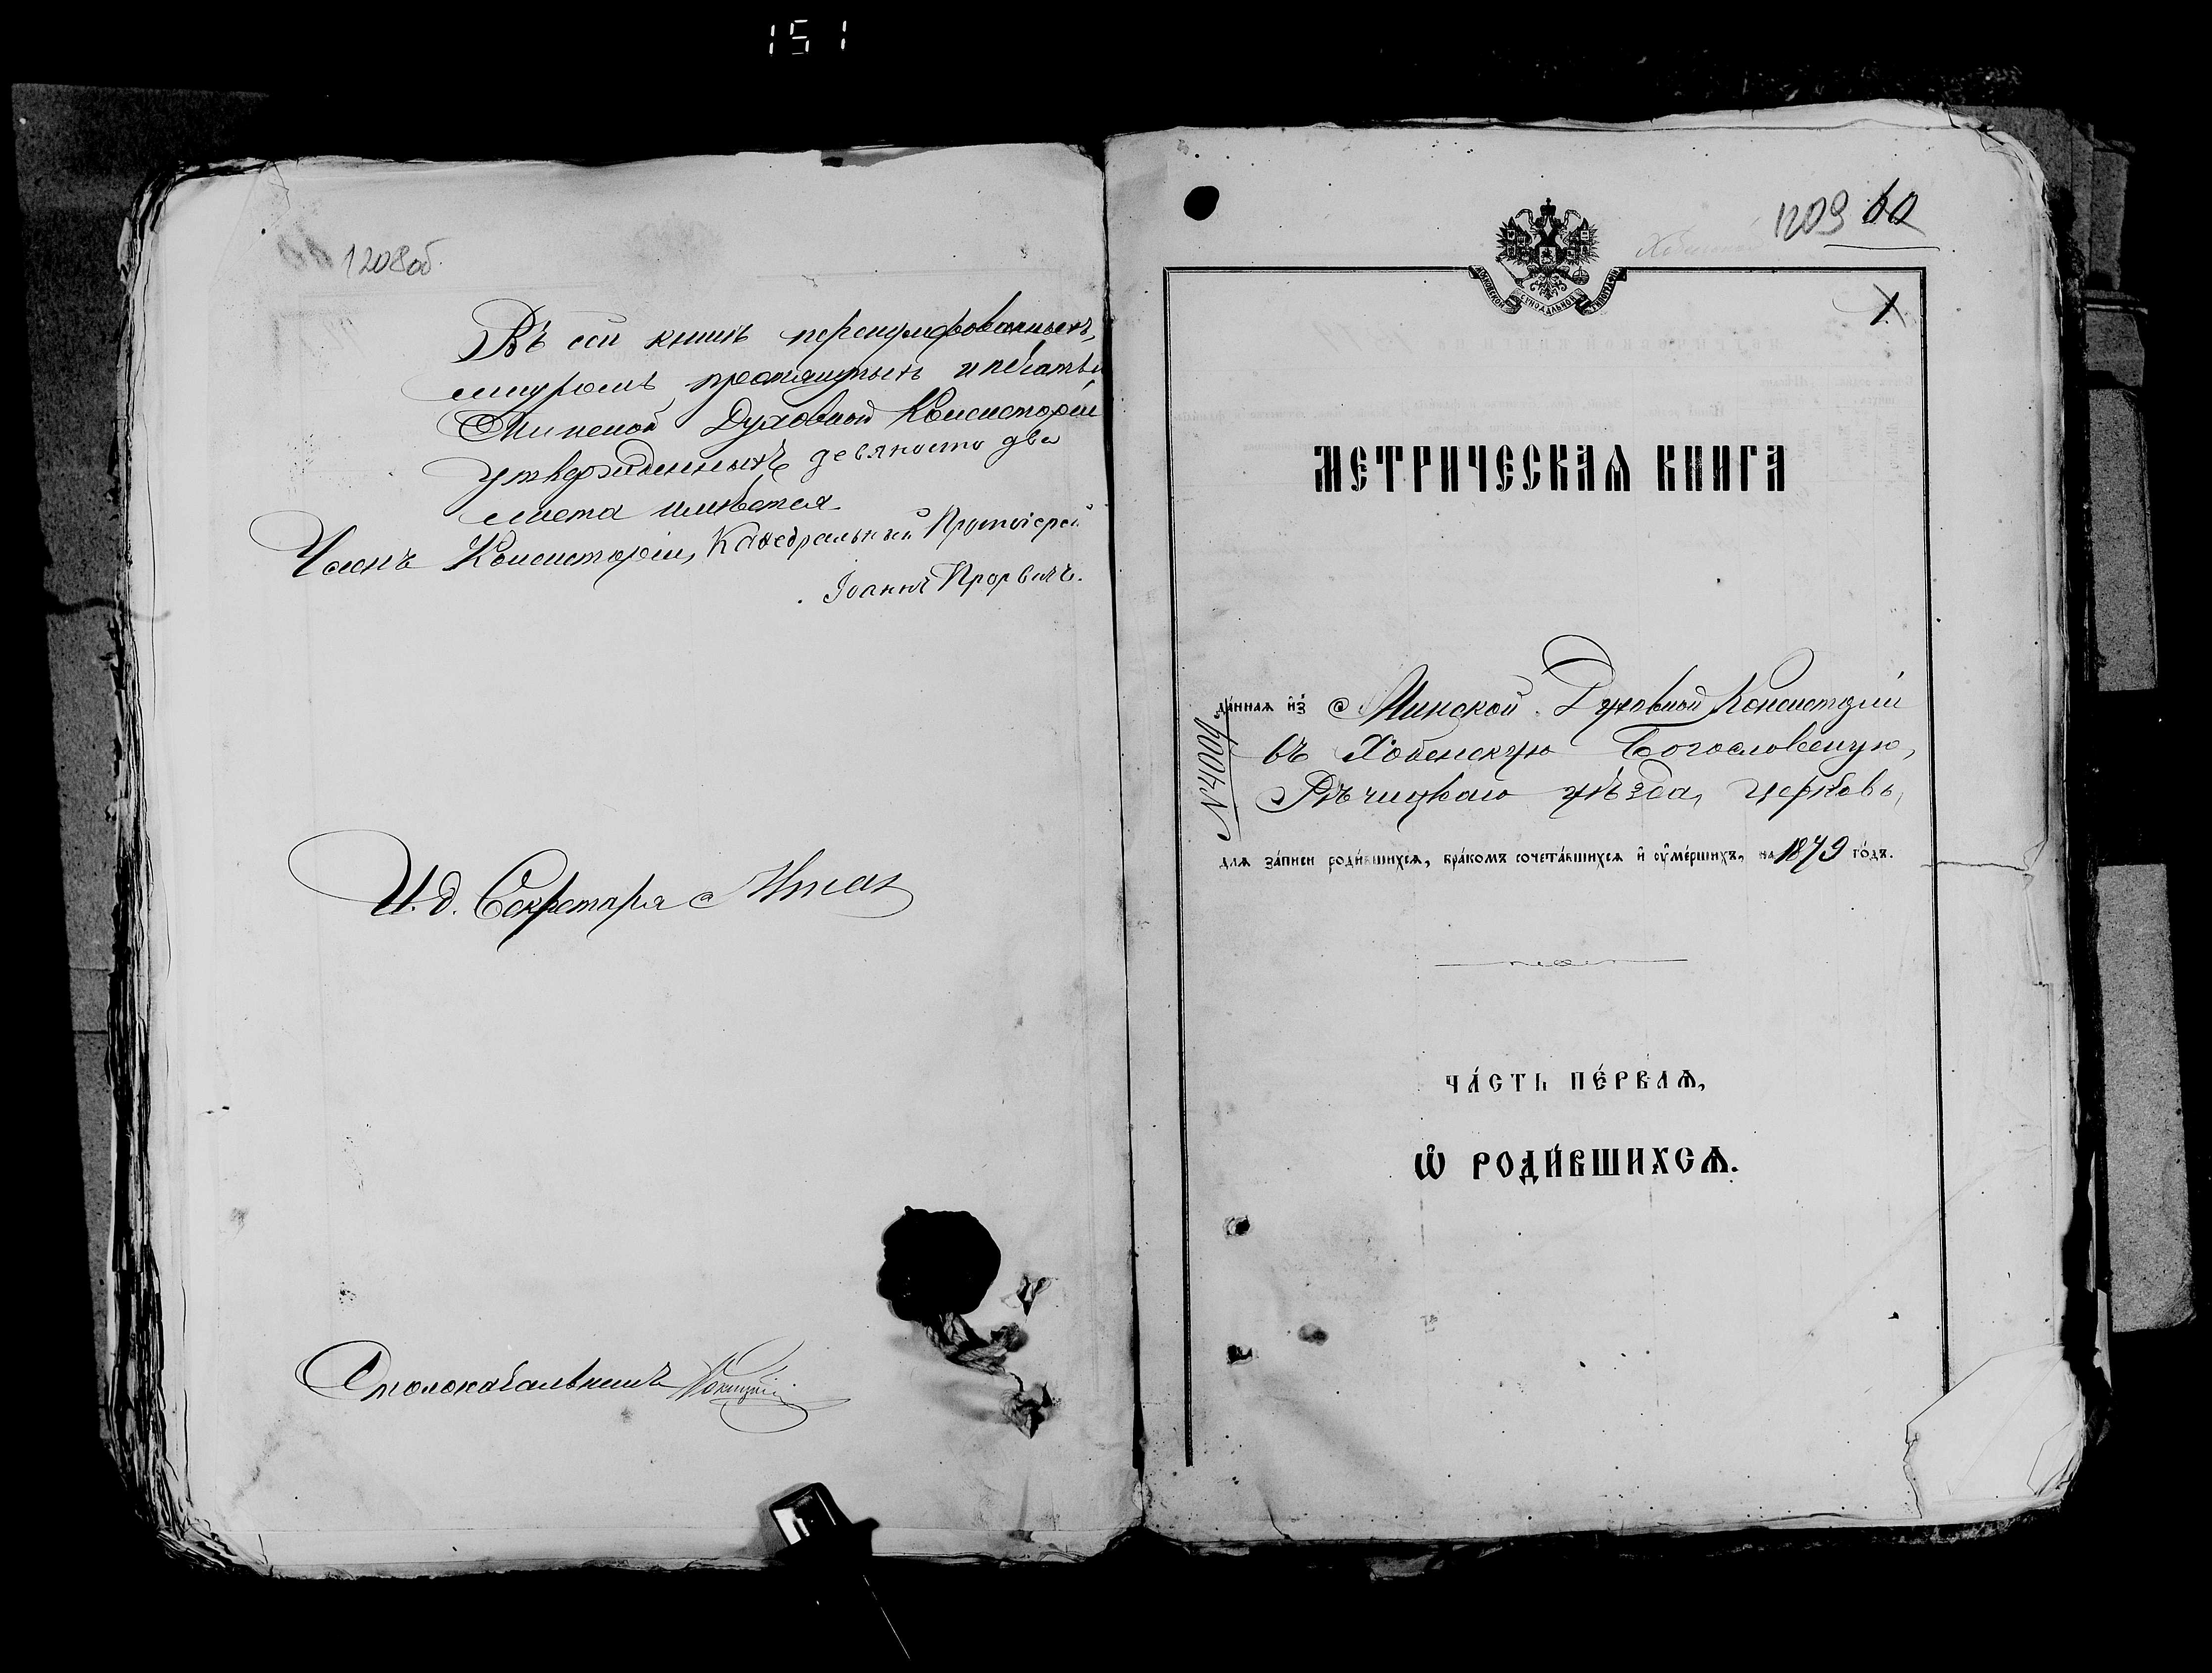 151
1208об.
Въ сей книгѣ перенумерованныхъ,
шнуромъ протянутыхъ и печатью
Минской Духовной Консисторіи
утвержденныхъ девяносто два
листа имѣется.
Членъ Консисторіи, Каѳедральный Протоіерей
Іоаннъ
И. д. Секретаря
Столоначальникъ
1209 60
1.
МОСКОВСКОЙ СѴНОДАЛЬНОЙ ТИПОГРАФІИ
МЕТРИЧЕСКАѦ КНИГА
да́ннаѧ и҆з̾ Минской Духовной Консисторіи
въ Хобенскую Богословскую,
Рѣчицкаго уѣзда, церковь,
№ 4004
для за́писи роди́вшихсѧ, бра́комъ сочета́вшихсѧ и҆ ᲂу҆ме́ршихъ, на 1879 го́дъ.
ЧА́СТЬ ПЕ́РВАѦ,
Ѡ҆ РОДИ́ВШИХСѦ.